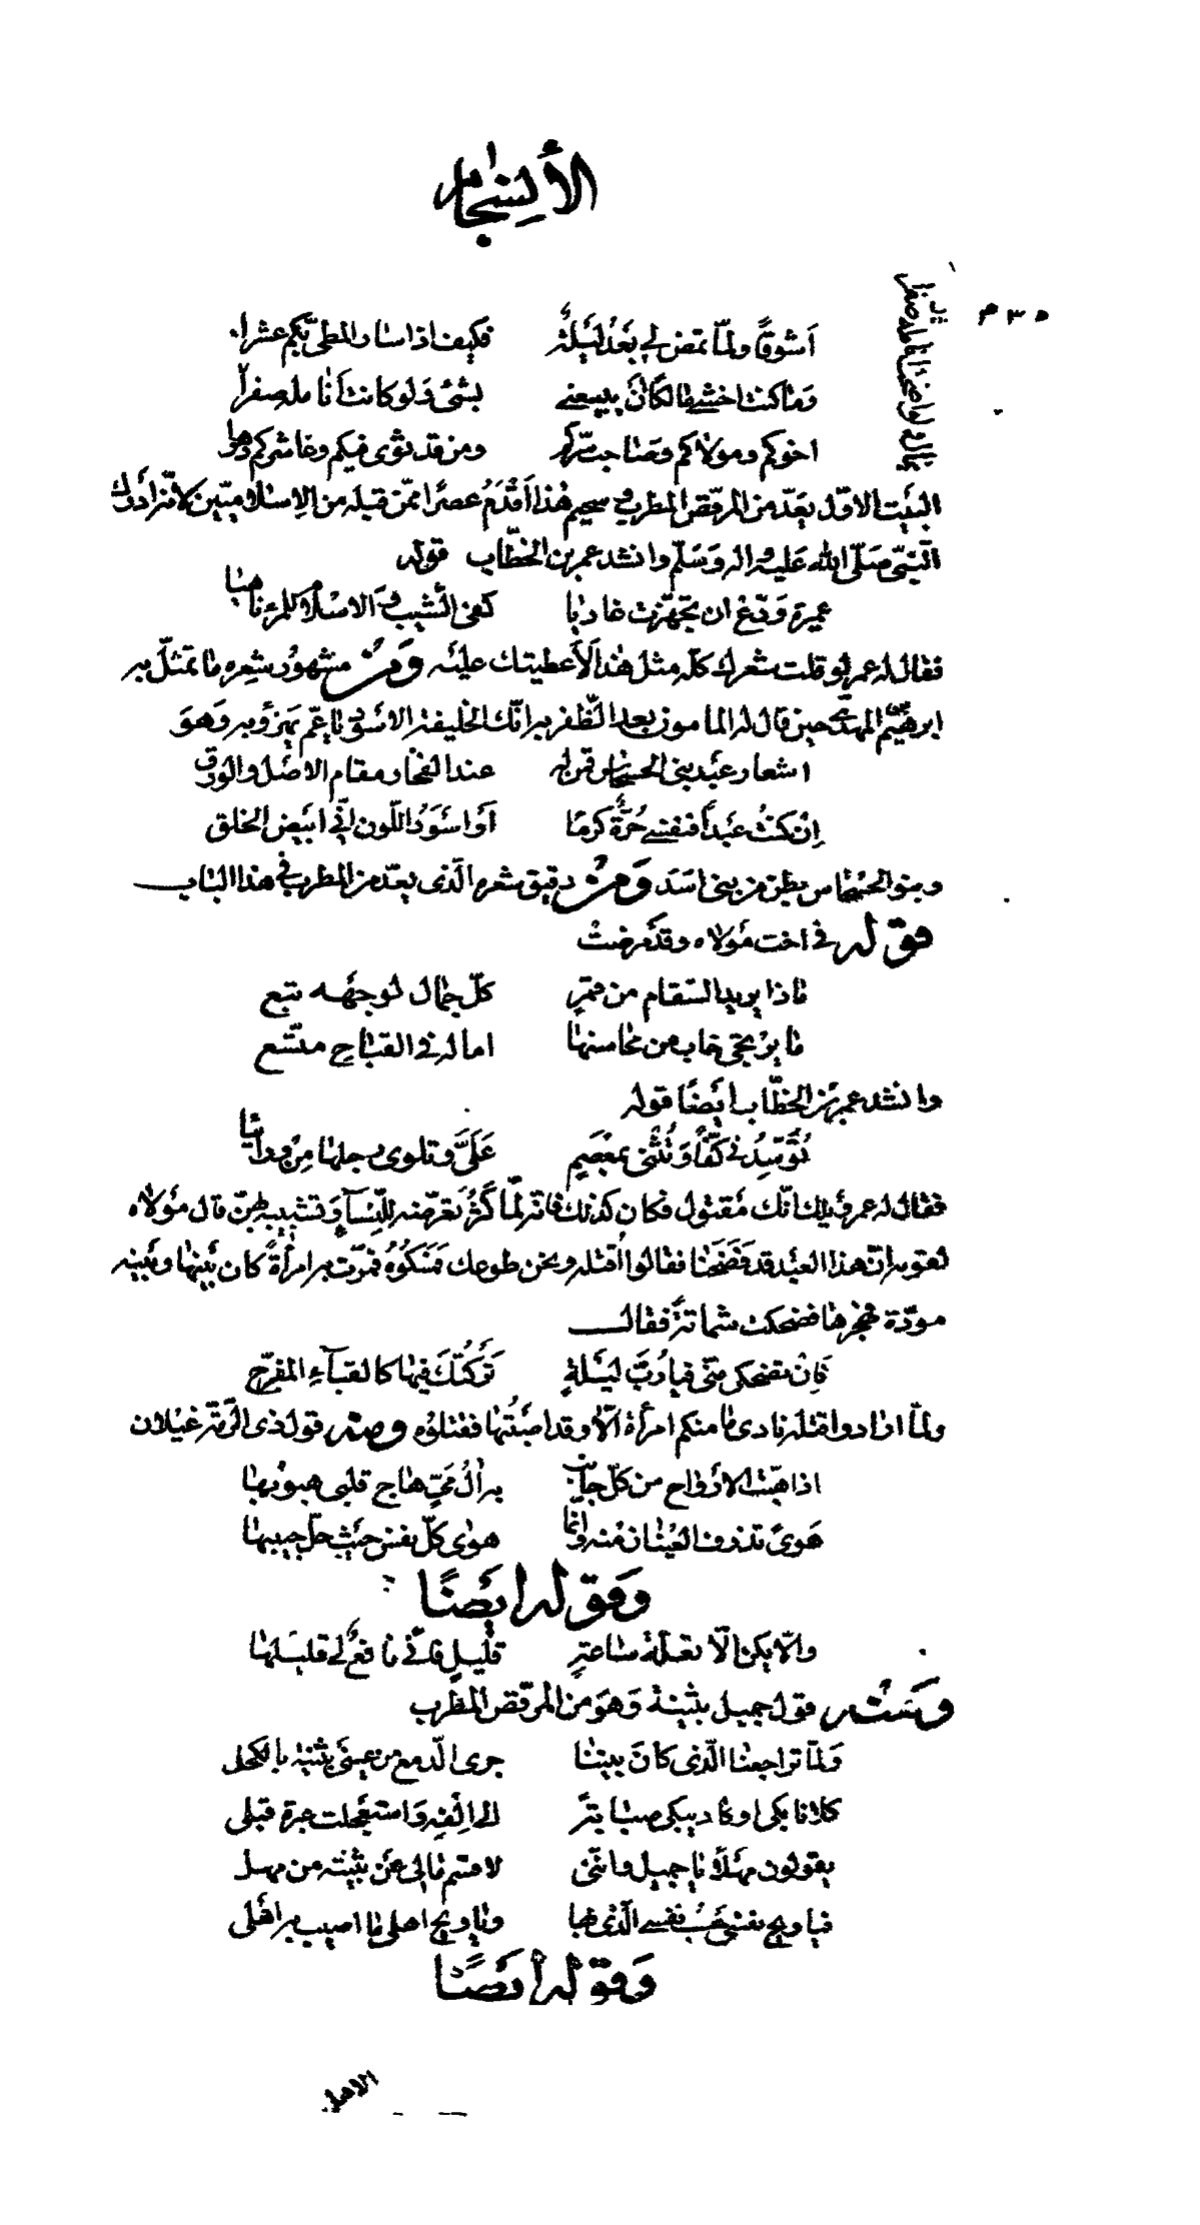 الأنسجام
٥٣٥ م
أشوقاً ولمّا تمض لي بعدُ ليلةٌ فكيف اذا سار المطىّ بكم عشرا
وما كنت اخشى مالكاً أن يبيعني بشئ ولو كانت أنامله صفراً
اخوكم ومولاكم وصاحب سرّكم ومن قد ثوى فيكم وعاشركم دهرا
البيت الاوّل يعدّ من المرقّص المطرب و سحيم هذا أقدَمُ عصراً ممّن قبله من الإسلاميّين لأنّه أدرك
النّبيّ صَلّى الله عَليه واله وَسَلّم وانشد عمر بن الخطّاب قوله
عميرة وَدّع ان تجهّزت غاديا كفى الشّيب والاسلام للمرء ناهيا
فقال له عمر لو قلت شعرك كلّه مثل هذا لأعطيتك عليه وَمنْ مشهور شعره ما تمثّل به
ابرهيم المهدىّ حين قال له المامون بعد الظّفر به انّك الخليفة الاسود يا عمّ يهزؤ به وَهوَ
اشعار عبد بنى الحسحاس قمن له عند الفخار مقام الاصل والورق
إن كنتُ عبداً فنفسي حُرّةٌ كرمًا أوا سوَدُ اللّون انّي ابيض الخلق
وبنو الحسحاس بطن من بنى اسَد وَمنْ رقيق شعره الّذى يعدّ من المطرب في هذا الباب
قوله في اخت مولاه وقد مرضتْ
ماذا يريد السّقام من قمرٍ كلّ جمال لوجهه تبع
ما يرتجى خاب من محاسنها اما له في القباح متّسع
وانشد عمر بن الخطّاب ايضًا قوله
تُوَسّدُني كفّاً وَتُثنى بمعصَمٍ عَلَىَّ وتلوى رجلها من ورائيا
فقال له عمر ويلك انّك مَقتول فكان كذلك فانّه لمّا كثُر تعرّضه للنّسآءِ وَتشبيبه بهنّ قال مَولاه
لقومه انّ هذا العبد قد فَضَحَنا فقالوا اُقتله ونحن طوعك فَمَسَكوُهُ فمرّت به امرأةٌ كان بَينها وبَينه
مودّة فهجرها فضحكت شماتةً فقال
فإن تضحكى منّى فيا رُبّ ليلةٍ تَركتُكَ فيها كالقبآءِ المفرّج
ولمّا ارادوا قتله نادى ما منكم امرأة الّا وقد اصَبتُها فقتلوُه ومنه قول ذى الرّمّة غيلان
اذا هبّت الارواح من كلّ جانب به آلُ مَىٍّ هاج قلبى هبوبها
هَوىً تذرف العينان منه وانّما هوى كلّ نفس حيث حلّ حبيبها
وَقوله ايَضًا
والّا يكن الّا تعلّة ساعةٍ قليلٍ فانّى نافعٌ لى قليلها
وَمنْه قول جميل بثينة وَهوَ من المرقّص المطرب
وَلمّا تراجعنا الّذى كانَ بيننا جرى الدّمع من عينى بثينة بالكحل
كلانا بكى او كاد يبكى صبابةً الى الفِه وَاستعجلت عبرة قبلى
يقولون مهلاً يا جميل وانّنى لاقسم مالى عن بثينة من مهل
فيا ويح نفسى حَسْبُ نفسى الّذى بها ويا ويح اهلى ما اصيب به اهلى
وَقوله أيَضًا